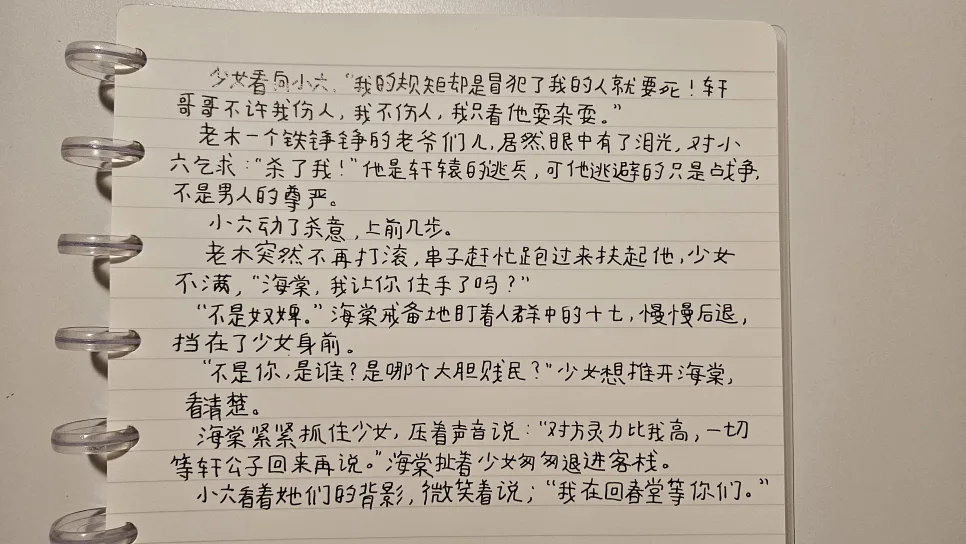 少女看向小六，“我的规矩却是冒犯了我的人就要死！轩
哥哥不许我伤人，我不伤人，我只看他耍杂耍。”
老木一个铁铮铮的老爷们儿，居然眼中有了泪光，对小
六乞求：“杀了我！”他是轩辕的逃兵，可他逃避的只是战争，
不是男人的尊严。
小六动了杀意，上前几步。
老木突然不再打滚，串子赶忙跑过来扶起他，少女
不满，“海棠，我让你住手了吗？”
“不是奴婢。”海棠戒备地盯着人群中的十七，慢慢后退，
挡在了少女身前。
“不是你，是谁？是哪个大胆贱民？”少女想推开海棠，
看清楚。
海棠紧紧抓住少女，压着声音说：“对方灵力比我高，一切
等轩公子回来再说。”海棠扯着少女匆匆退进客栈。
小六看着她们的背影，微笑着说；“我在回春堂等你们。”